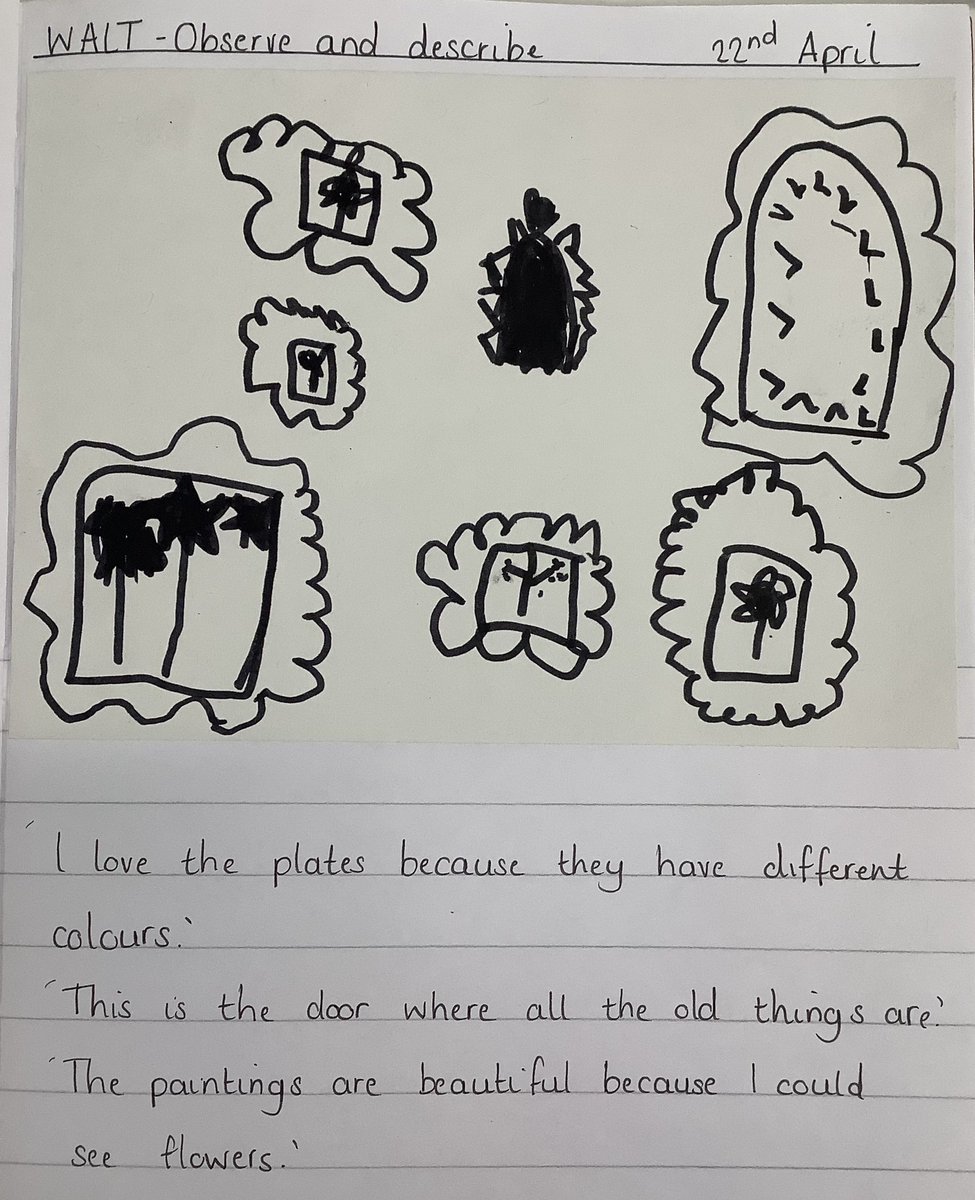 WALT - Observe and describe 22nd April
'I love the plates because they have different
colours.'
'This is the door where all the old things are.'
'The paintings are beautiful because I could
see flowers.'